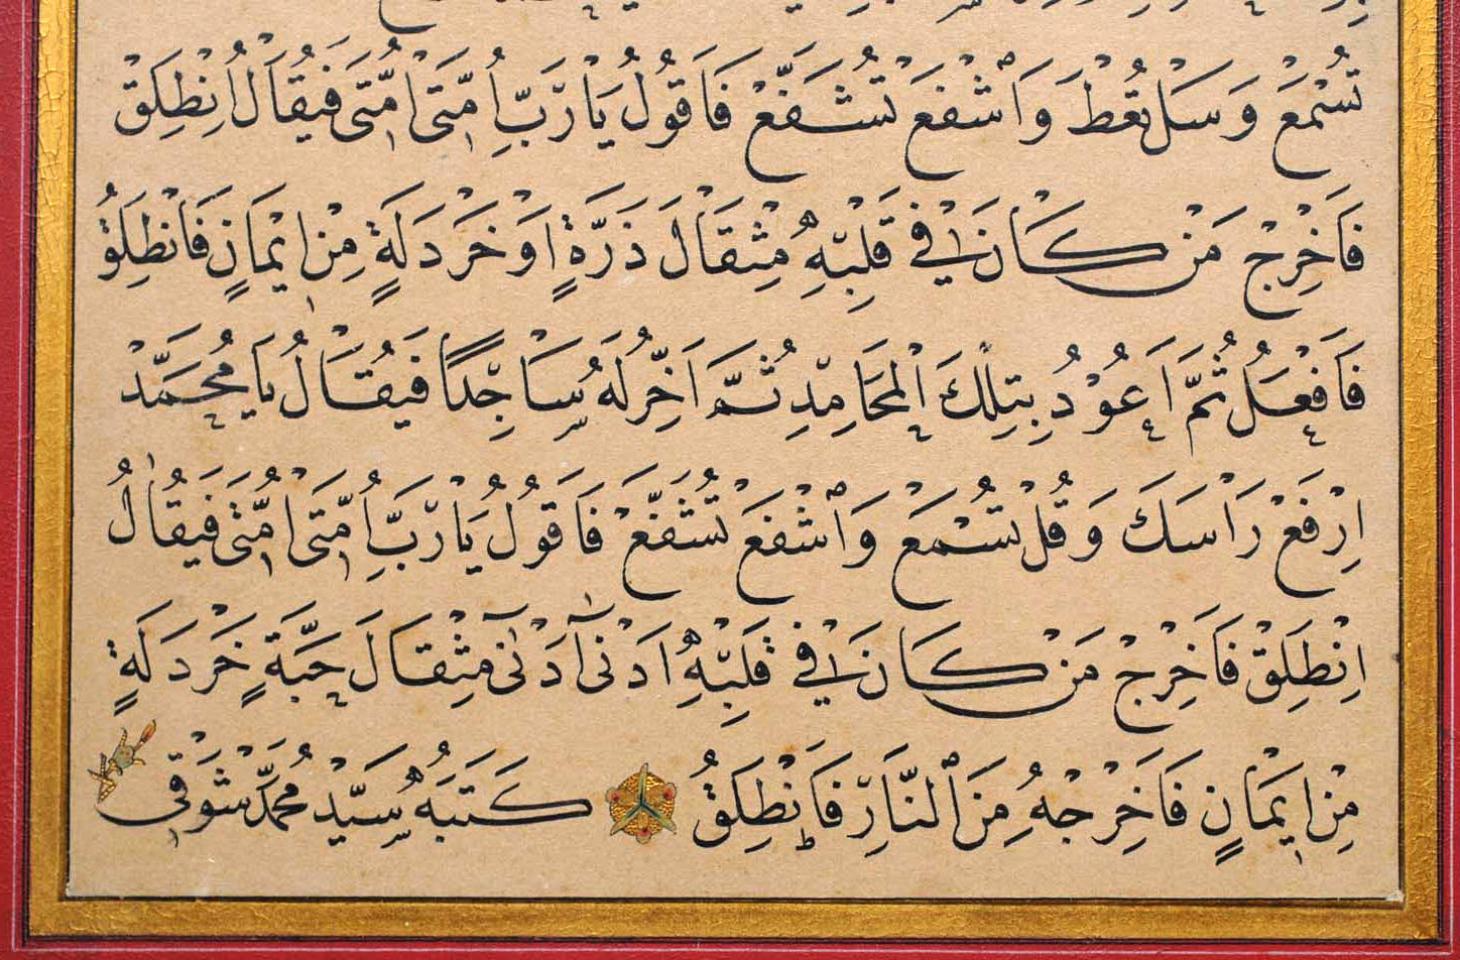 تُسْمَعْ وَسَلْ تُعْطَ وَاشْفَعْ تُشَفَّعْ فَاَقُولُ يَا رَبِّ اُمَّتِى اُمَّتِى فَيُقَالُ اِنْطَلِقْ
فَاَخْرِجْ مَنْ كَانَ فِي قَلْبِهِ مِثْقَالَ ذَرَّةٍ اَوْ خَرْدَلَةٍ مِنْ اِيْمَانٍ فَانْطَلِقُ
فَاَفْعَلُ ثُمَّ اَعُوْدُ بِتِلْكَ الْمَحَامِدِ ثُمَّ اَخِرُّ لَهُ سَاجِدًا فَيُقَالُ يَا مُحَمَّدْ
اِرْفَعْ رَاْسَكَ وَقُلْ تُسْمَعْ وَاشْفَعْ تُشَفَّعْ فَاَقُولُ يَا رَبِّ اُمَّتِى اُمَّتِى فَيُقَالُ
اِنْطَلِقْ فَاَخْرِجْ مَنْ كَانَ فِي قَلْبِهِ اَدْنٰى اَدْنٰى مِثْقَالَ حَبَّةٍ خَرْدَلَةٍ
مِنْ اِيْمَانٍ فَاَخْرِجْهُ مِنَ النَّارِ فَاَنْطَلِقُ كَتَبَهُ سَيِّدْ مُحَمَّدْ شَوْقِى